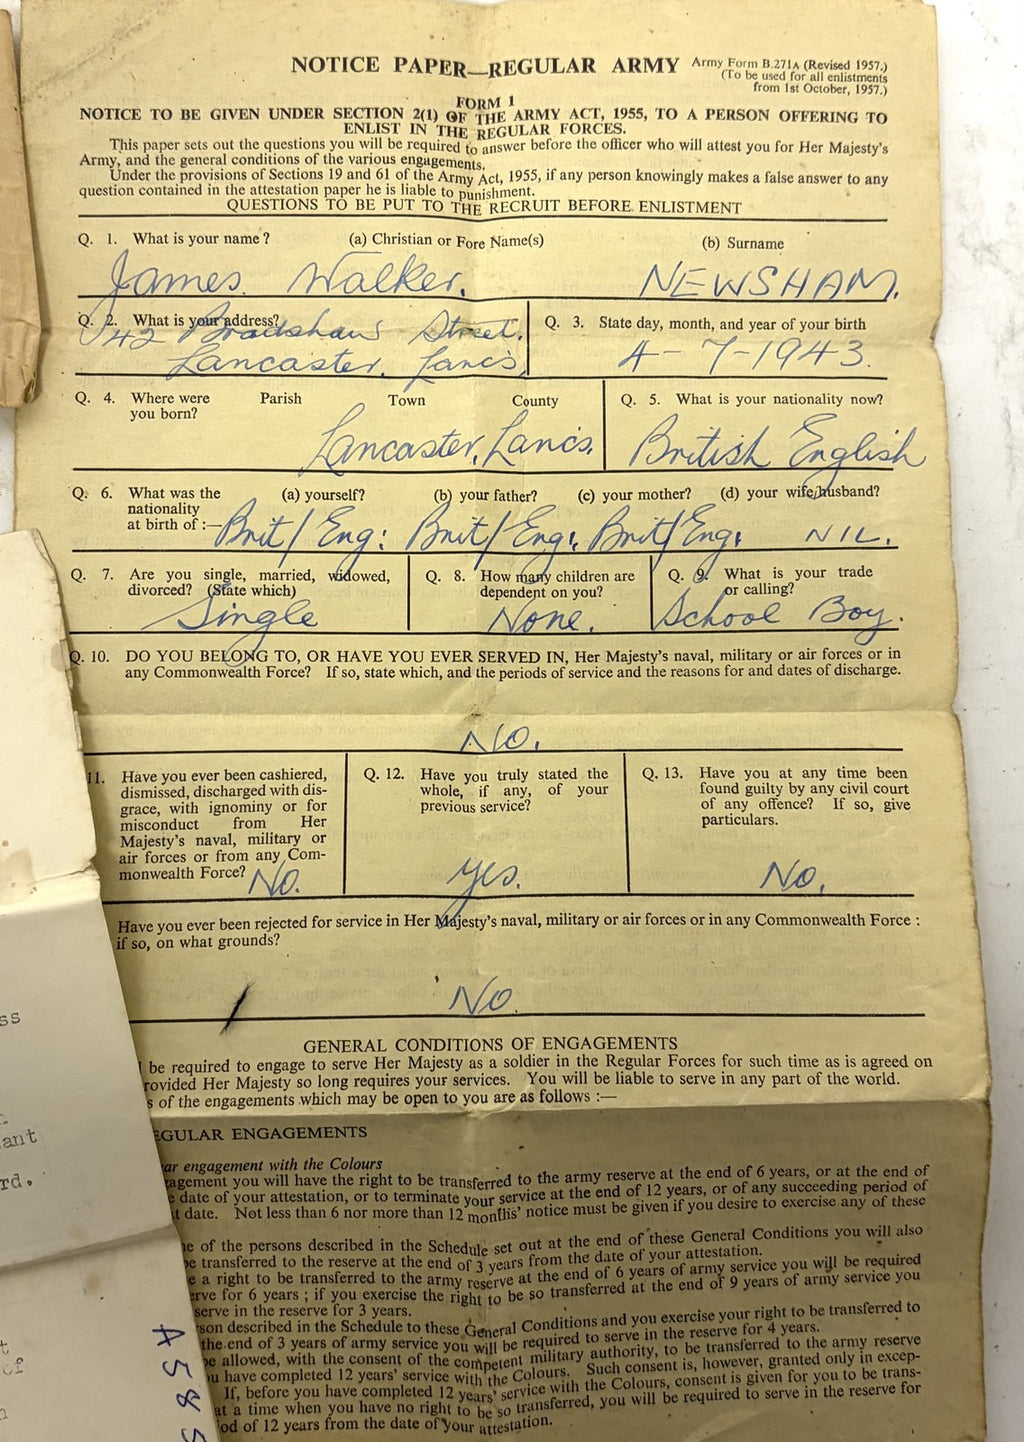 NOTICE PAPER—REGULAR ARMY
Army Form B.271A (Revised 1957.)
(To be used for all enlistments
from 1st October, 1957.)
FORM 1
NOTICE TO BE GIVEN UNDER SECTION 2(1) OF THE ARMY ACT, 1955, TO A PERSON OFFERING TO
ENLIST IN THE REGULAR FORCES.
This paper sets out the questions you will be required to answer before the officer who will attest you for Her Majesty's
Army, and the general conditions of the various engagements.
Under the provisions of Sections 19 and 61 of the Army Act, 1955, if any person knowingly makes a false answer to any
question contained in the attestation paper he is liable to punishment.
QUESTIONS TO BE PUT TO THE RECRUIT BEFORE ENLISTMENT
Q. 1. What is your name? (a) Christian or Fore Name(s) (b) Surname
James Walker. NEWSHAM.
Q. 2. What is your address?
42 Bradshaw Street.
Lancaster. Lancs.
Q. 3. State day, month, and year of your birth
4-7-1943.
Q. 4. Where were you born? Parish Town County
Lancaster, Lancs.
Q. 5. What is your nationality now?
British English
Q. 6. What was the nationality at birth of :— (a) yourself? (b) your father? (c) your mother? (d) your wife/husband?
Brit/Eng: Brit/Eng: Brit/Eng: NIL.
Q. 7. Are you single, married, widowed,
divorced? (State which)
Single
Q. 8. How many children are
dependent on you?
None.
Q. 9. What is your trade
or calling?
School Boy.
Q. 10. DO YOU BELONG TO, OR HAVE YOU EVER SERVED IN, Her Majesty's naval, military or air forces or in
any Commonwealth Force? If so, state which, and the periods of service and the reasons for and dates of discharge.
NO.
11. Have you ever been cashiered,
dismissed, discharged with dis-
grace, with ignominy or for
misconduct from Her
Majesty's naval, military or
air forces or from any Com-
monwealth Force?
NO.
Q. 12. Have you truly stated the
whole, if any, of your
previous service?
Yes.
Q. 13. Have you at any time been
found guilty by any civil court
of any offence? If so, give
particulars.
No.
Have you ever been rejected for service in Her Majesty's naval, military or air forces or in any Commonwealth Force :
if so, on what grounds?
No.
GENERAL CONDITIONS OF ENGAGEMENTS
be required to engage to serve Her Majesty as a soldier in the Regular Forces for such time as is agreed on
rovided Her Majesty so long requires your services. You will be liable to serve in any part of the world.
s of the engagements which may be open to you are as follows :—
EGULAR ENGAGEMENTS
ar engagement with the Colours
agement you will have the right to be transferred to the army reserve at the end of 6 years, or at the end of
e date of your attestation, or to terminate your service at the end of 12 years, or of any succeeding period of
t date. Not less than 6 nor more than 12 months' notice must be given if you desire to exercise any of these
e of the persons described in the Schedule set out at the end of these General Conditions you will also
be transferred to the reserve at the end of 3 years from the date of your attestation.
e a right to be transferred to the army reserve at the end of 6 years of army service you will be required
erve for 6 years ; if you exercise the right to be so transferred at the end of 9 years of army service you
serve in the reserve for 3 years.
son described in the Schedule to these General Conditions and you exercise your right to be transferred to
the end of 3 years of army service you will be required to serve in the reserve for 4 years.
be allowed, with the consent of the competent military authority, to be transferred to the army reserve
u have completed 12 years' service with the Colours. Such consent is, however, granted only in excep-
If, before you have completed 12 years' service with the Colours, consent is given for you to be trans-
at a time when you have no right to be so transferred, you will be required to serve in the reserve for
od of 12 years from the date of your attestation.
ss
ant
rd.
of
A585